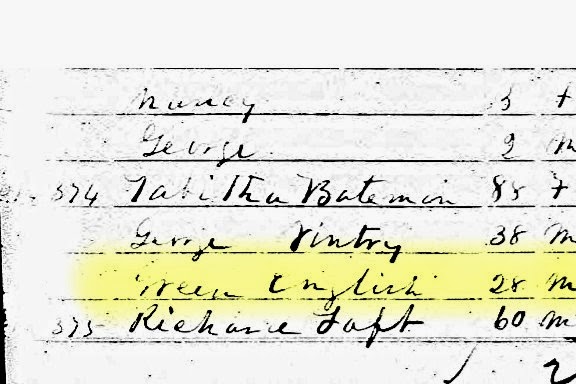 Nancy 3 f
George 2 m
374 Tabitha Bateman 88 f
George Vintry 38 m
Green English 28 m
375 Richard Taft 60 m
2